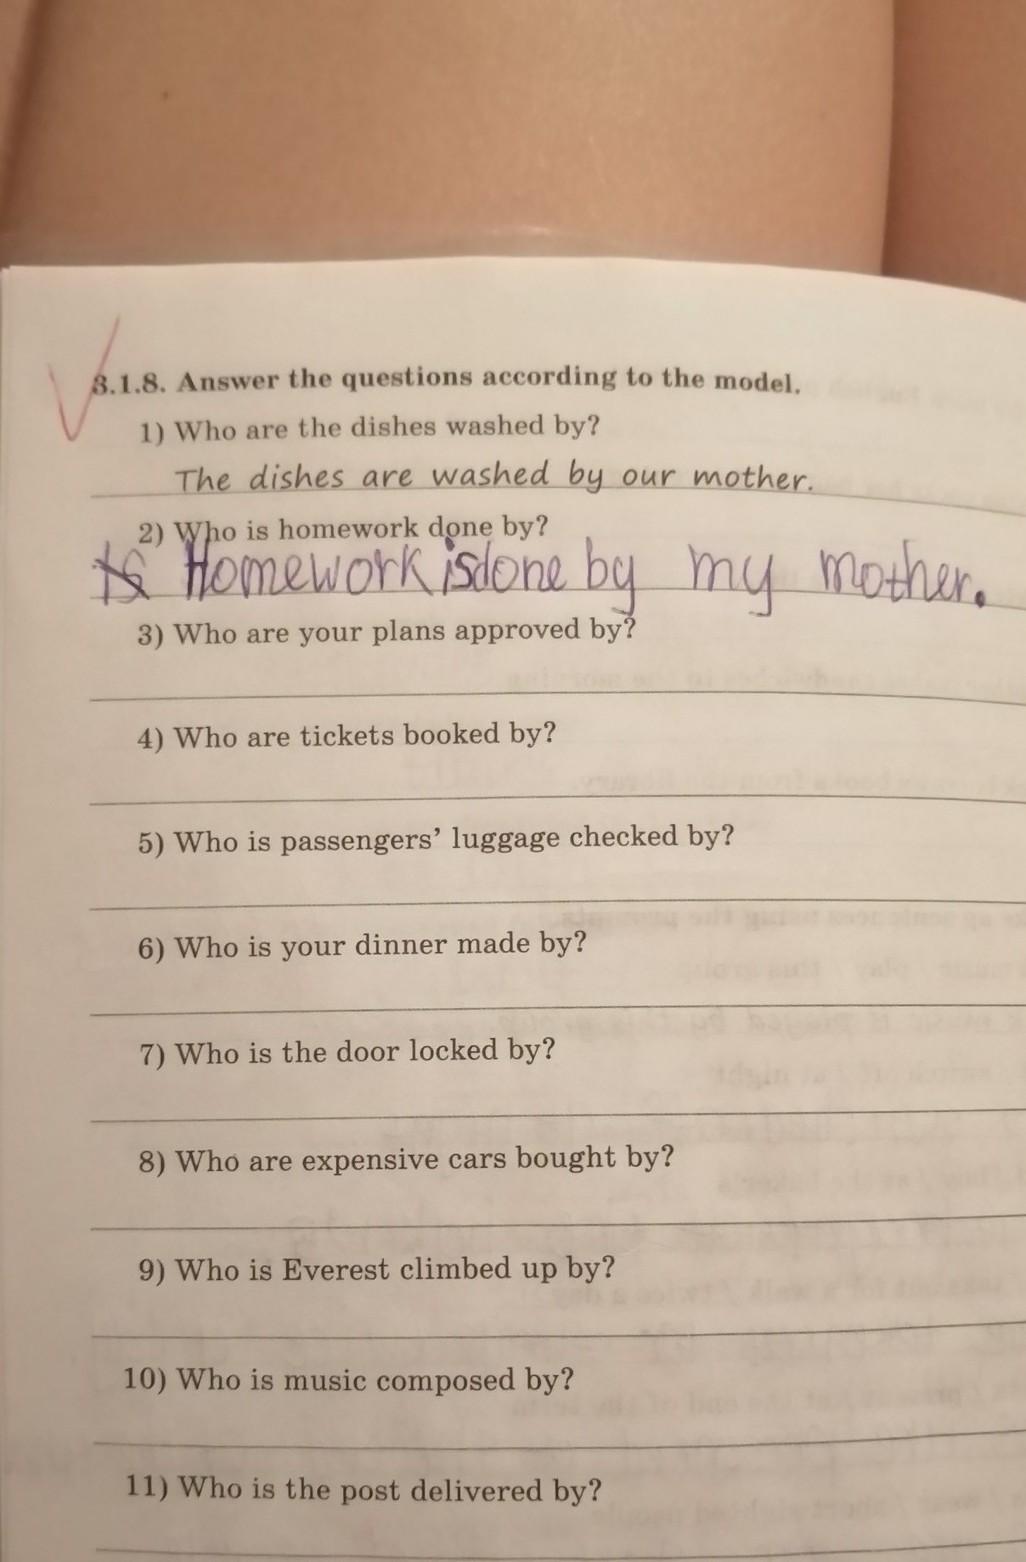 3.1.8. Answer the questions according to the model.
1) Who are the dishes washed by?
The dishes are washed by our mother.
2) Who is homework done by?
Homework is done by my mother.
3) Who are your plans approved by?
4) Who are tickets booked by?
5) Who is passengers’ luggage checked by?
6) Who is your dinner made by?
7) Who is the door locked by?
8) Who are expensive cars bought by?
9) Who is Everest climbed up by?
10) Who is music composed by?
11) Who is the post delivered by?